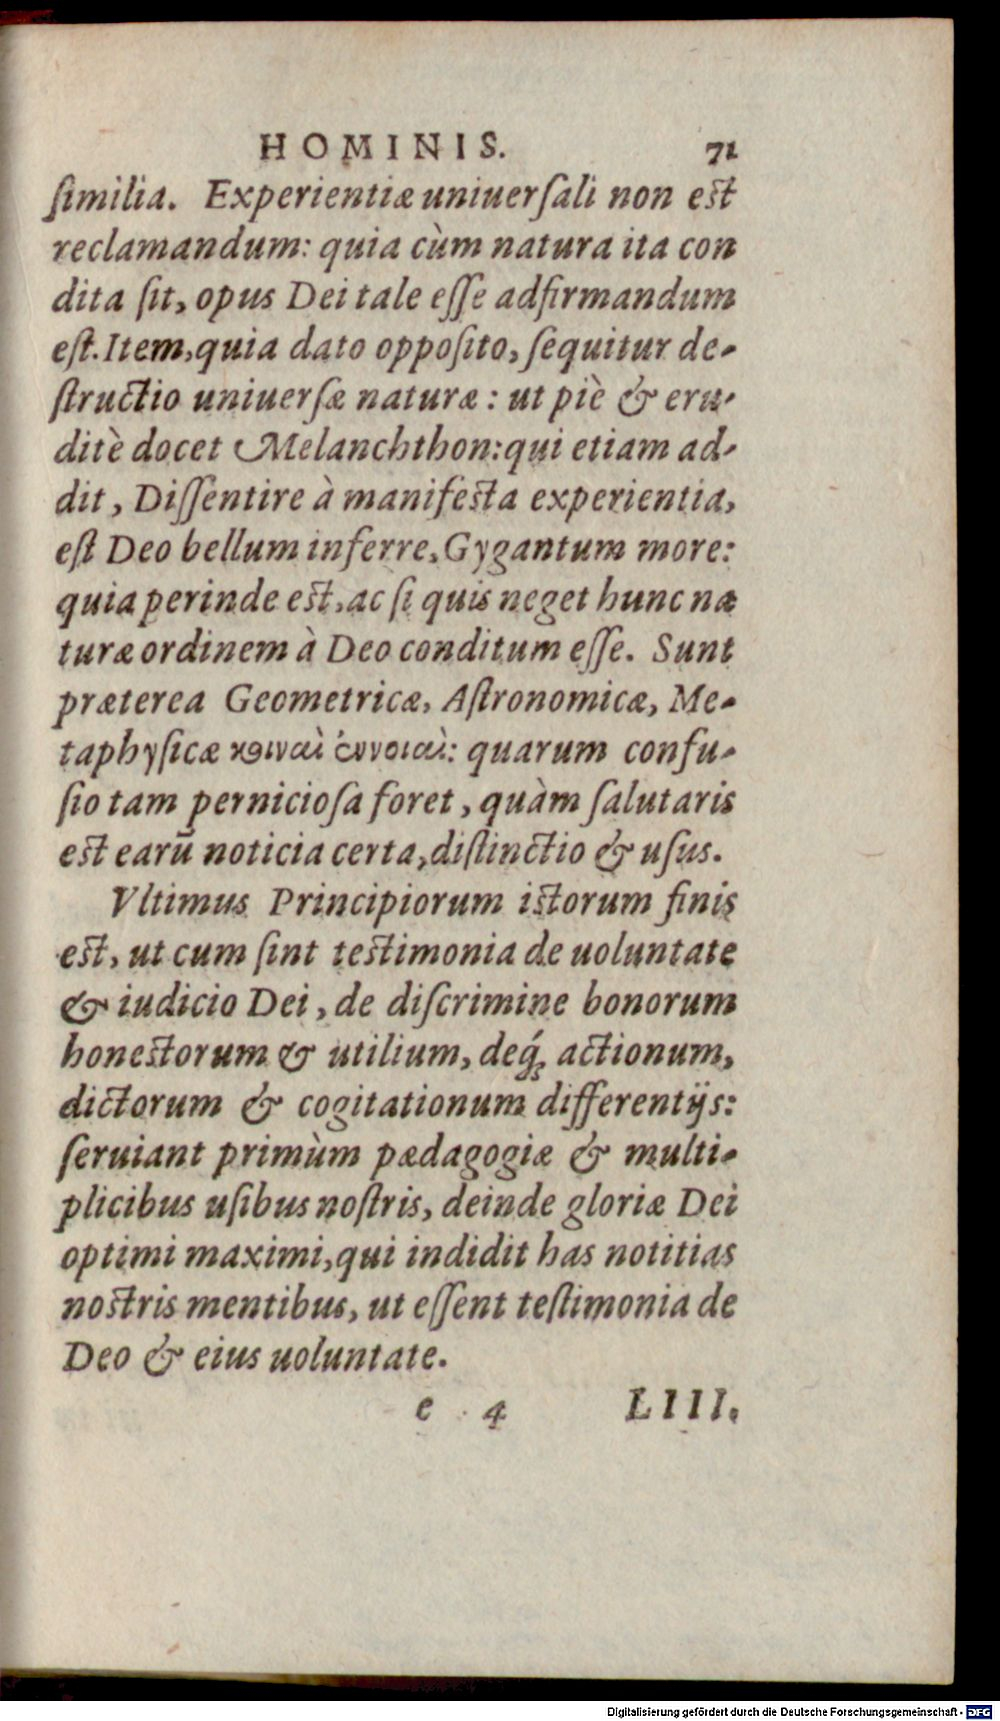 HOMINIS. 71
ſimilia. Experientiæ uniuerſali non est
reclamandum: quia cùm natura ita con
dita ſit, opus Dei tale eſſe adfirmandum
eſt. Item, quia dato oppoſito, ſequitur de-
ſtructio uniuerſæ naturæ: ut piè & eru-
ditè docet Melanchthon: qui etiam ad-
dit, Diſſentire à manifesta experientia,
eſt Deo bellum inferre, Gygantum more:
quia perinde est, ac ſi quis neget hunc na
turæ ordinem à Deo conditum eſſe. Sunt
præterea Geometricæ, Aſtronomicæ, Me-
taphyſicæ κοιναὶ ἐννοιαὶ: quarum confu-
ſio tam pernicioſa foret, quàm ſalutaris
est earū noticia certa, diſtinctio & uſus.
Vltimus Principiorum istorum finis
est, ut cum ſint testimonia de uoluntate
& iudicio Dei, de diſcrimine bonorum
honestorum & utilium, deq́; actionum,
dictorum & cogitationum differentijs:
ſeruiant primùm pædagogiæ & multi-
plicibus uſibus noſtris, deinde gloriæ Dei
optimi maximi, qui indidit has notitias
nostris mentibus, ut eſſent teſtimonia de
Deo & eius uoluntate.
e 4 LIII.
Digitalisierung gefördert durch die Deutsche Forschungsgemeinschaft - DFG